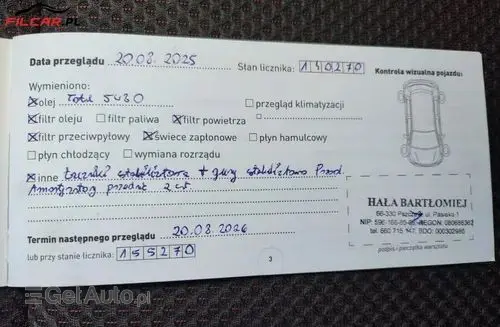 FILCAR.PL
Data przeglądu 20.08.2025 Stan licznika: 140270
Kontrola wizualna pojazdu:
Wymieniono:
olej Total 5W30 przegląd klimatyzacji
filtr oleju filtr paliwa filtr powietrza
filtr przeciwpyłowy świece zapłonowe płyn hamulcowy
płyn chłodzący wymiana rozrządu
inne Łączniki stabilizatora + gumy stabilizatora Przód
Amortyzatory przednie 2 szt.
HAŁA BARTŁOMIEJ
66-330 ul. Pasieka 1
NIP: REGON:
tel. 660 715 147, BDO: 000302986
podpis i pieczątka warsztatu
Termin następnego przeglądu 20.08.2026
lub przy stanie licznika: 155270
3
GetAuto.pl